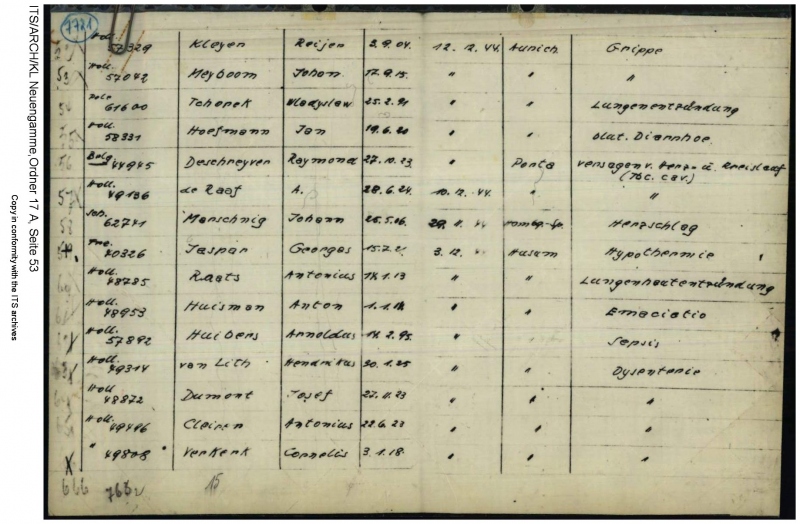 ITS/ARCH/KL Neuengamme,Ordner 17 A, Seite 53
Copy in conformity with the ITS archives
7721
Holl. 57329 Kleyen Reijer 3.9.04. 12. 12. 44. Aurich Grippe
53 Holl. 57042 Meyboom Johan. 17.9.15. " " "
Pole 61600 Tchorek Wladyslaw 25.2.91 " " Lungenentzündung
Holl. 58331 Hoefmann Jan 19.6.20 " " blut. Diarrhoe.
56 Belg 44945 Deschreyver Raymond 27.10.23. " Porta Versagen v. Herz- u. Kreislauf
(Tbc. cav.)
57 Holl. 49186 de Raaf A. 28.6.24. 10. 12. 44. " "
58 62741 Marschnig Johann 26.5.06. 29. 11. 44 Herzschlag
40326 Jaspar Georges 15.7.21 3. 12. " Husum Hypothermie
Holl. 48785 Raats Antonius 18.1.13 " " Lungenhautentzündung
Holl. 48953 Huisman Anton 1.1.18. " " Emaciatio
Holl. 57892 Huibers Arnoldus 18.2.95. " " Sepsis
Holl. 49314 van Lith Hendrikus 30.1.25 " " Dysenterie
Holl 48872 Dumont Josef 27.11.23 " " "
Holl. 49496 Antonius 22.6.23 " " "
" 49808 Verkerk Cornelis 3.1.18. " " "
666 15